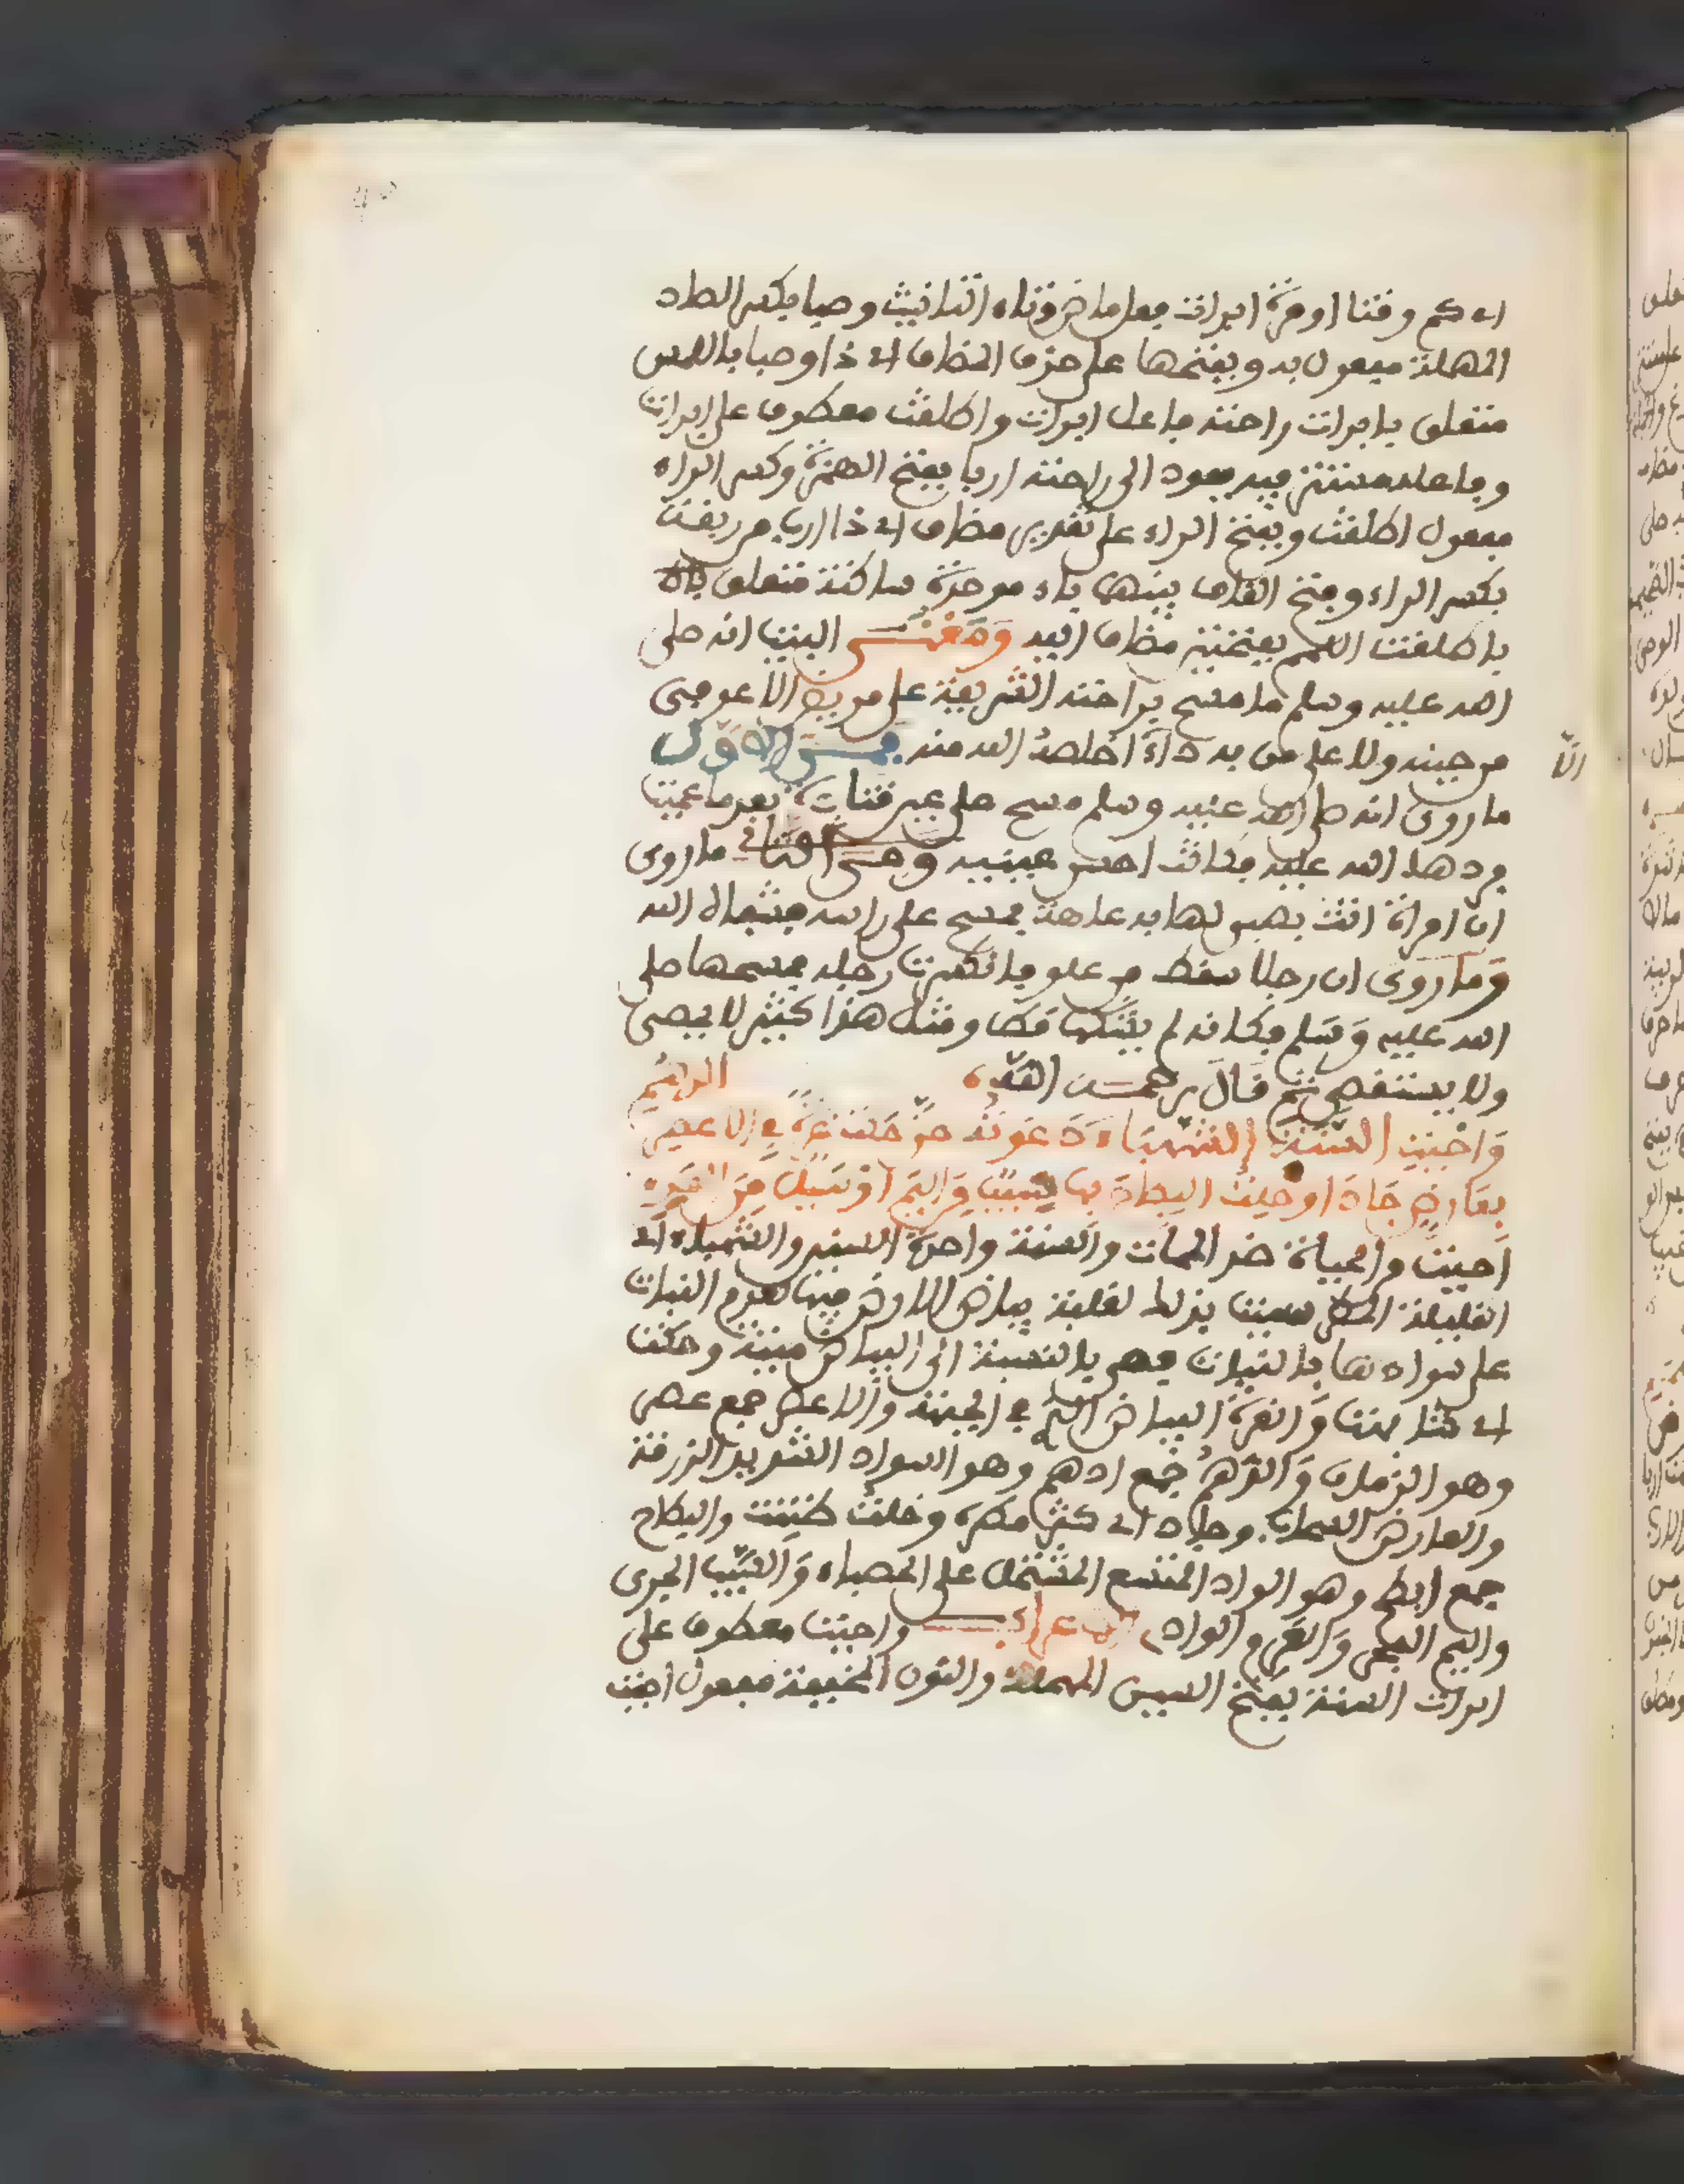 اي كم وقتا او مرة ابرات فعل ماض وتاء التانيث وصبا بكسر الصاد
المهملة مفعول به وبفتحها على حذف المضاف اي ذا وصبا باللمس
متعلق بابرات راحته فاعل ابرات واطلقت معطوف على ابرات
وفاعله مستتر فيه يعود الى راحته اربا بفتح الهمزة وكسر الراء
مفعول اطلقت وبفتح الراء على تقدير مضاف اي ذا ارب من ربقة
بكسر الراء وفتح القاف بينهما باء موحدة ساكنة متعلق
باطلقت اللمم بفتحتين مضاف اليه ومعنى البيت انه صلى
الله عليه وسلم ما مسح براحته الشريفة على مريض الا عوفي
من حينه ولا على من به داء الا خلصه الله منه فمن الاول
ما روي انه صلى الله عليه وسلم مسح على عين قتادة بعد ما عميت
فردها الله عليه فكانت احسن عينيه ومن الثاني ما روي
ان امراة اتت بصبي لها به عاهة فمسح على راسه فشفاه الله
وما روي ان رجلا سقط من علو فانكسرت رجله فمسحها صلى
الله عليه وسلم فكانه لم يشتكها قط ومثل هذا كثير لا يحصى
ولا يستقصى ثم قال رحمه الله
واحيت السنة الشهباء دعوته حتى حكت غرة في الاعصر الدهم
بعارض جاد او خلت البطاح بها سيب من اليم او سيل من العرم
احيت والحياة ضد الممات والسنة واحدة السنين والشهباء اي
القليلة المطر سميت بذلك لغلبة بياض الارض فيها لعدم النبات
على سوادها بالنبات فهي بالنسبة الى البياض ميتة وحكت
اي شابهت والغرة البياض في الجبهة والاعصر جمع عصر
وهو الزمان والدهم جمع ادهم وهو السواد الشديد الزرقة
والعارض السحاب وجاد اي كثر مطره وخلت ظننت والبطاح
جمع ابطح وهو الواد المتسع المشتمل على الحصباء والسيب الجري
واليم البحر والعرم الواد الاعراب واحيت معطوف على
ابرات السنة بفتح السين المهملة والنون الخفيفة مفعول احيت